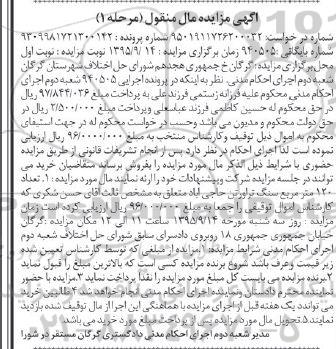 آگهی مزایده مال منقول (مرحله ۱)
شماره درخواست: ۹۵۰۱۹۱۱۷۲۶۲۰۰۰۳۲ شماره پرونده: ۹۳۰۹۹۸۱۷۲۱۳۰۰۱۴۲
شماره بایگانی: ۹۴۰۵۰۵ زمان برگزاری مزایده: ۱۳۹۵/۹/۱۴ نوبت مزایده: نوبت اول
محل برگزاری مزایده: گرگان خ جمهوری هجدهم شورای حل اختلاف شهرستان گرگان
شعبه دوم اجرای احکام مدنی. نظر به اینکه در پرونده اجرایی ۹۴۰۵۰۵ شعبه دوم اجرای
احکام مدنی محکوم علیه فرزانه رستمی فرزند علی به پرداخت مبلغ ۹۷/۸۴۴/۰۳۶ ریال
در حق محکوم له حسین کاظمی فرزند عباسعلی و پرداخت مبلغ ۲/۵۰۰/۰۰۰ ریال در
حق دولت محکوم و مدیون می باشد وحسب درخواست محکوم له در جهت استیفای
محکوم به اموال ذیل توقیف و کارشناس منتخب به مبلغ ۹۶/۰۰۰/۰۰۰ ریال ارزیابی
نموده است لذا اجرای احکام در نظر دارد پس از انجام تشریفات قانونی از طریق مزایده
حضوری با شرایط ذیل الذکر مال مورد مزایده را بفروش برساند متقاضیان خرید می
توانند در جلسه مزایده شرکت و پیشنهادات خود را ارئه نمایند مال مورد مزایده: ۱. تعداد
۱۲۰ متر مربع سنگ تراورتن حاجی آباد متعلق به مشخص ثالث آقای حسن شکری که
کارشناس اموال توقیفی را جمعا به مبلغ ۹۶/۰۰۰/۰۰۰ ریال ارزیابی کرده است زمان
مزایده: روز سه شنبه مورخه ۱۳۹۵/۹/۱۴ ساعت ۱۱ الی ۱۲ مکان مزایده: گرگان
خیابان جمهوری جمهوری ۱۸ روبروی دادسرای سابق شورای حل اختلاف شعبه دوم
اجرای احکام مدنی شرایط مزایده ۱.مزایده از مبلغی که توسط کارشناس تعیین شده
زیر قیمت وعرف باشد شروع برنده مزایده کسی است که بالاترین مبلغ را قبول نماید
۲.برنده مزایده می بایست کل مبلغ مورد مزایده را نقداً پرداخت نماید ۳.مزایده با حضور
نماینده محترم دادستان ونماینده اجرای احکام مدنی انجام خواهد شد ۴.طالبین خرید
می توانند یک هفته قبل از اجرای مزایده با هماهنگی این اجرا از مال توقیف شده بازدید
نمایند ۵.تحویل مال مورد مزایده پس از پرداخت مبلغ مورد خرید می باشد
مدیر شعبه دوم اجرای احکام مدنی دادگستری گرگان مستقر در شورا